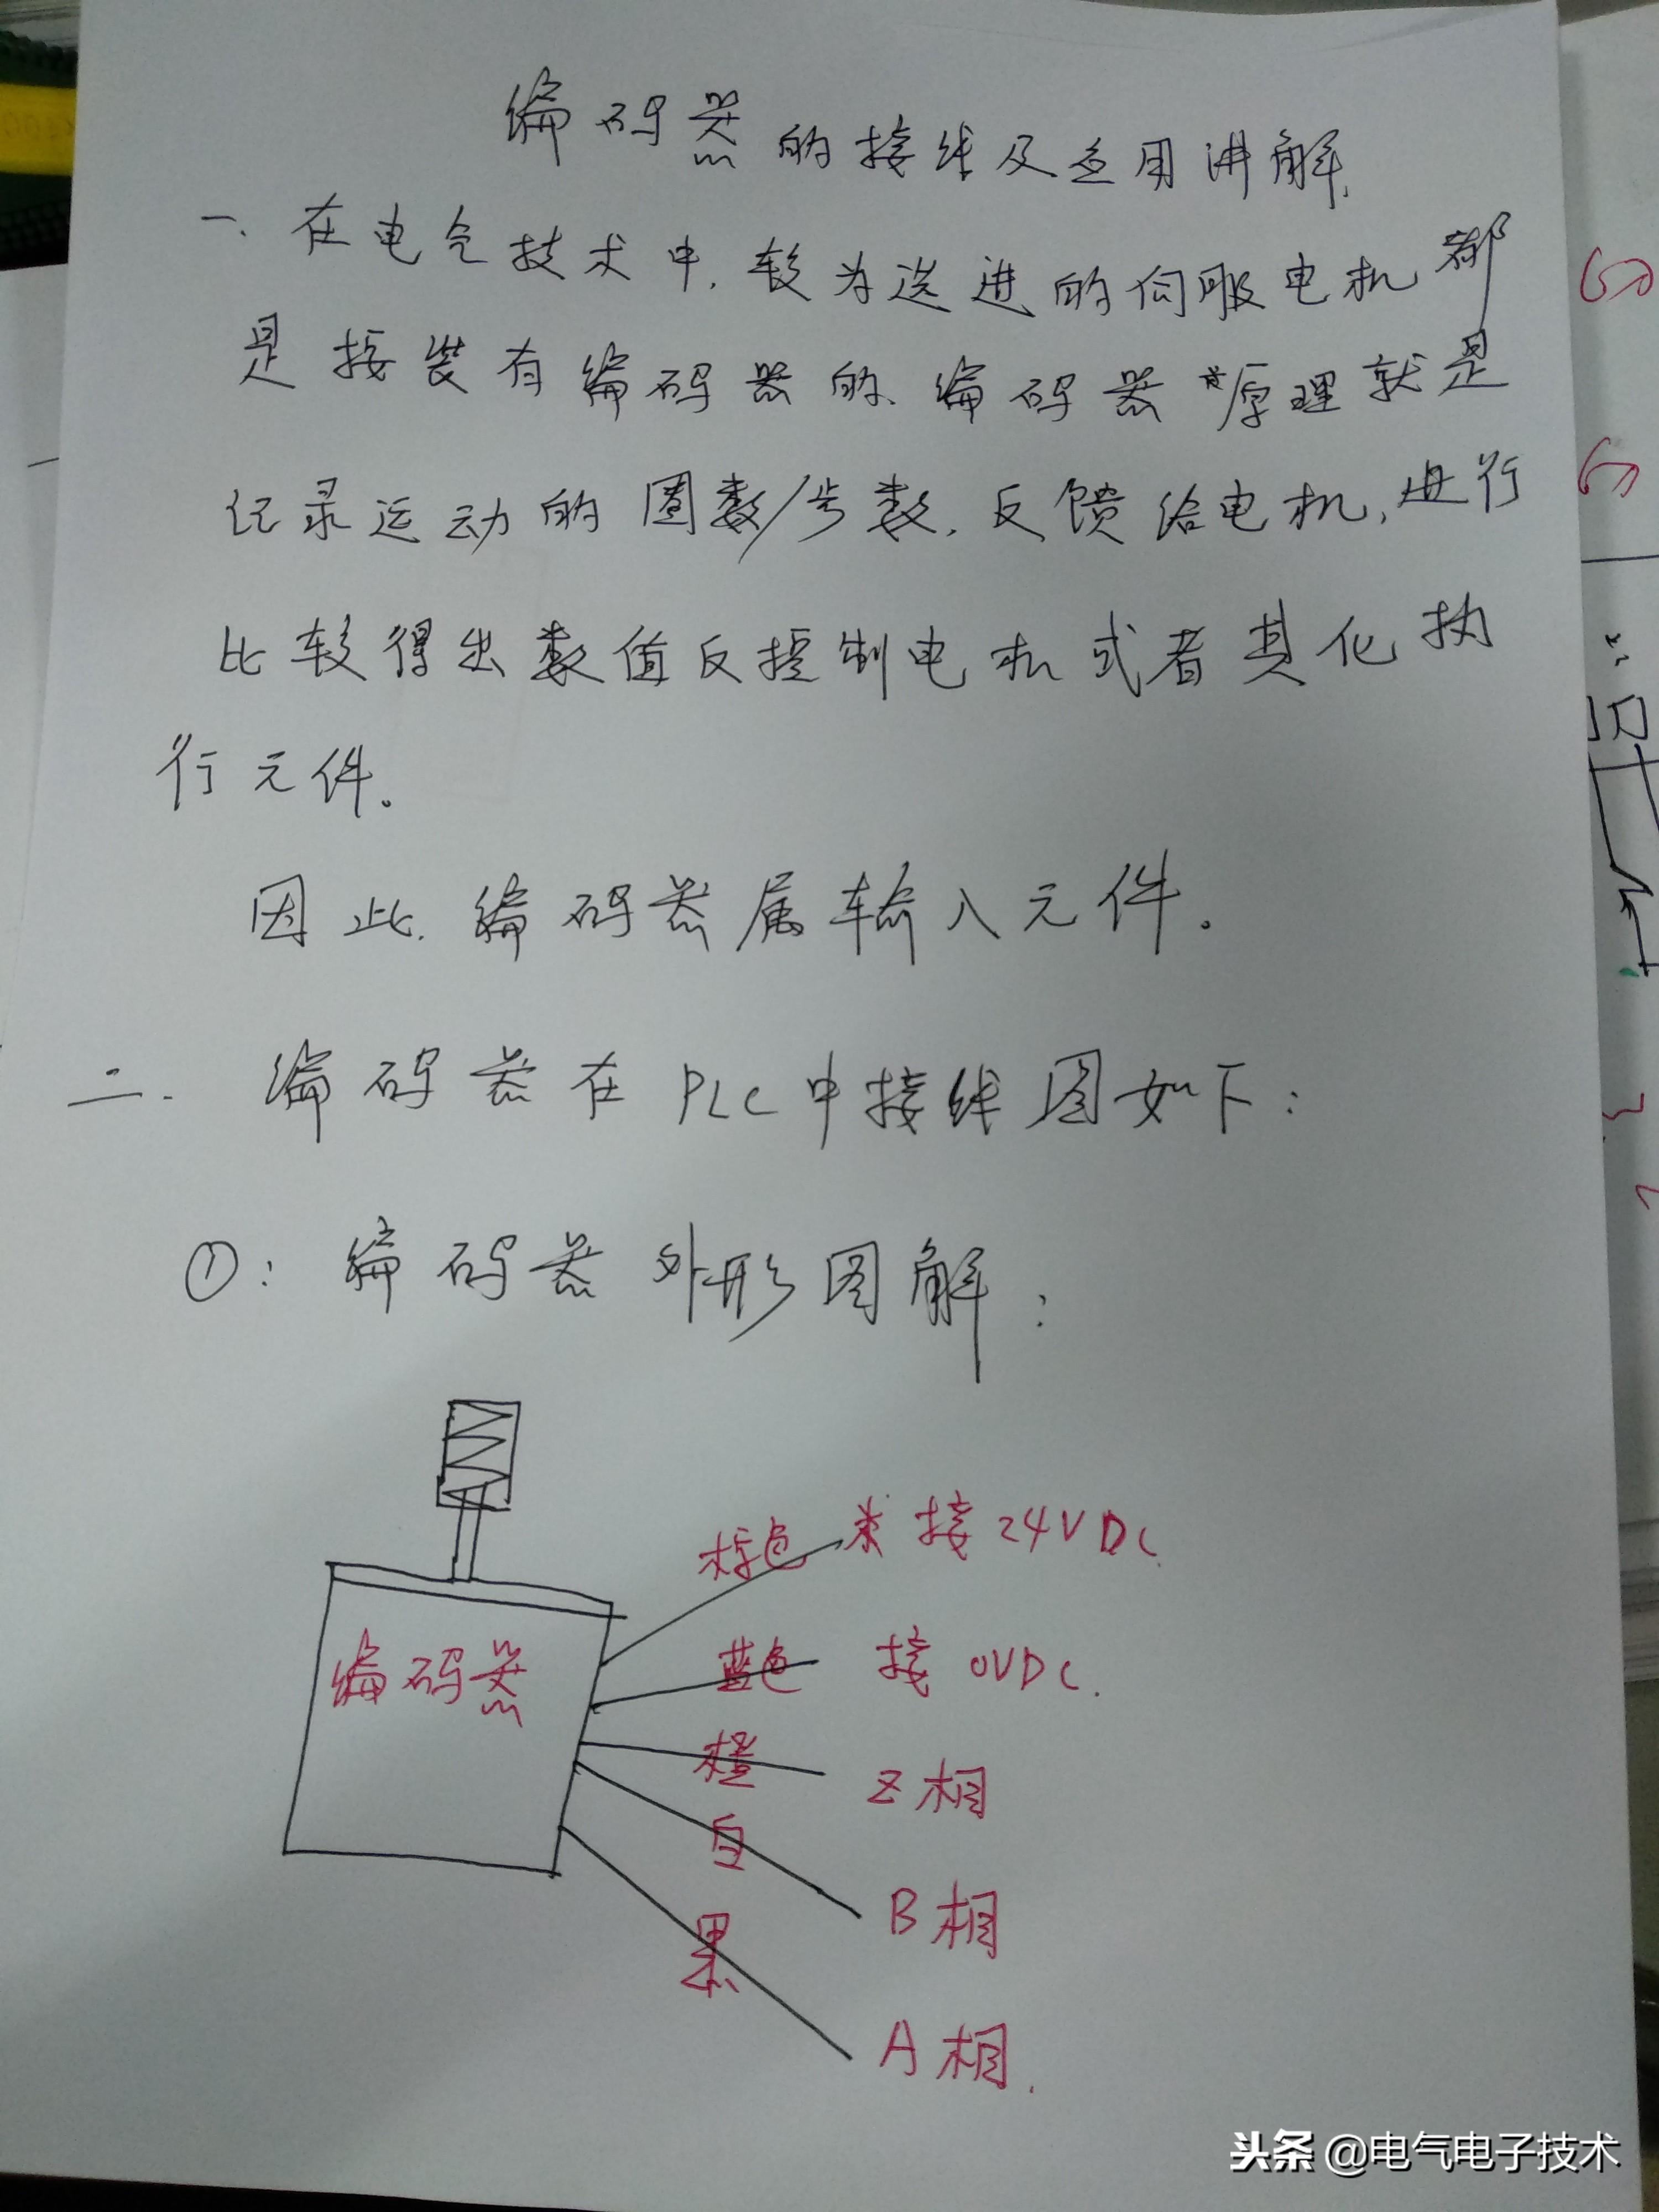 编码器的接线及应用讲解.
一、在电气技术中,较为先进的伺服电机都
是接装有编码器的、编码器 原理就是
记录运动的圈数/步数,反馈给电机,进行
比较得出数值反控制电机或者其他执
行元件。
因此.编码器属输入元件。
二. 编码器在PLC中接线图如下:
①: 编码器外形图解:
棕色 接24VDC.
编码器 蓝色 接 0VDC.
橙 Z相
白 B相
黑 A相.
头条 @电气电子技术